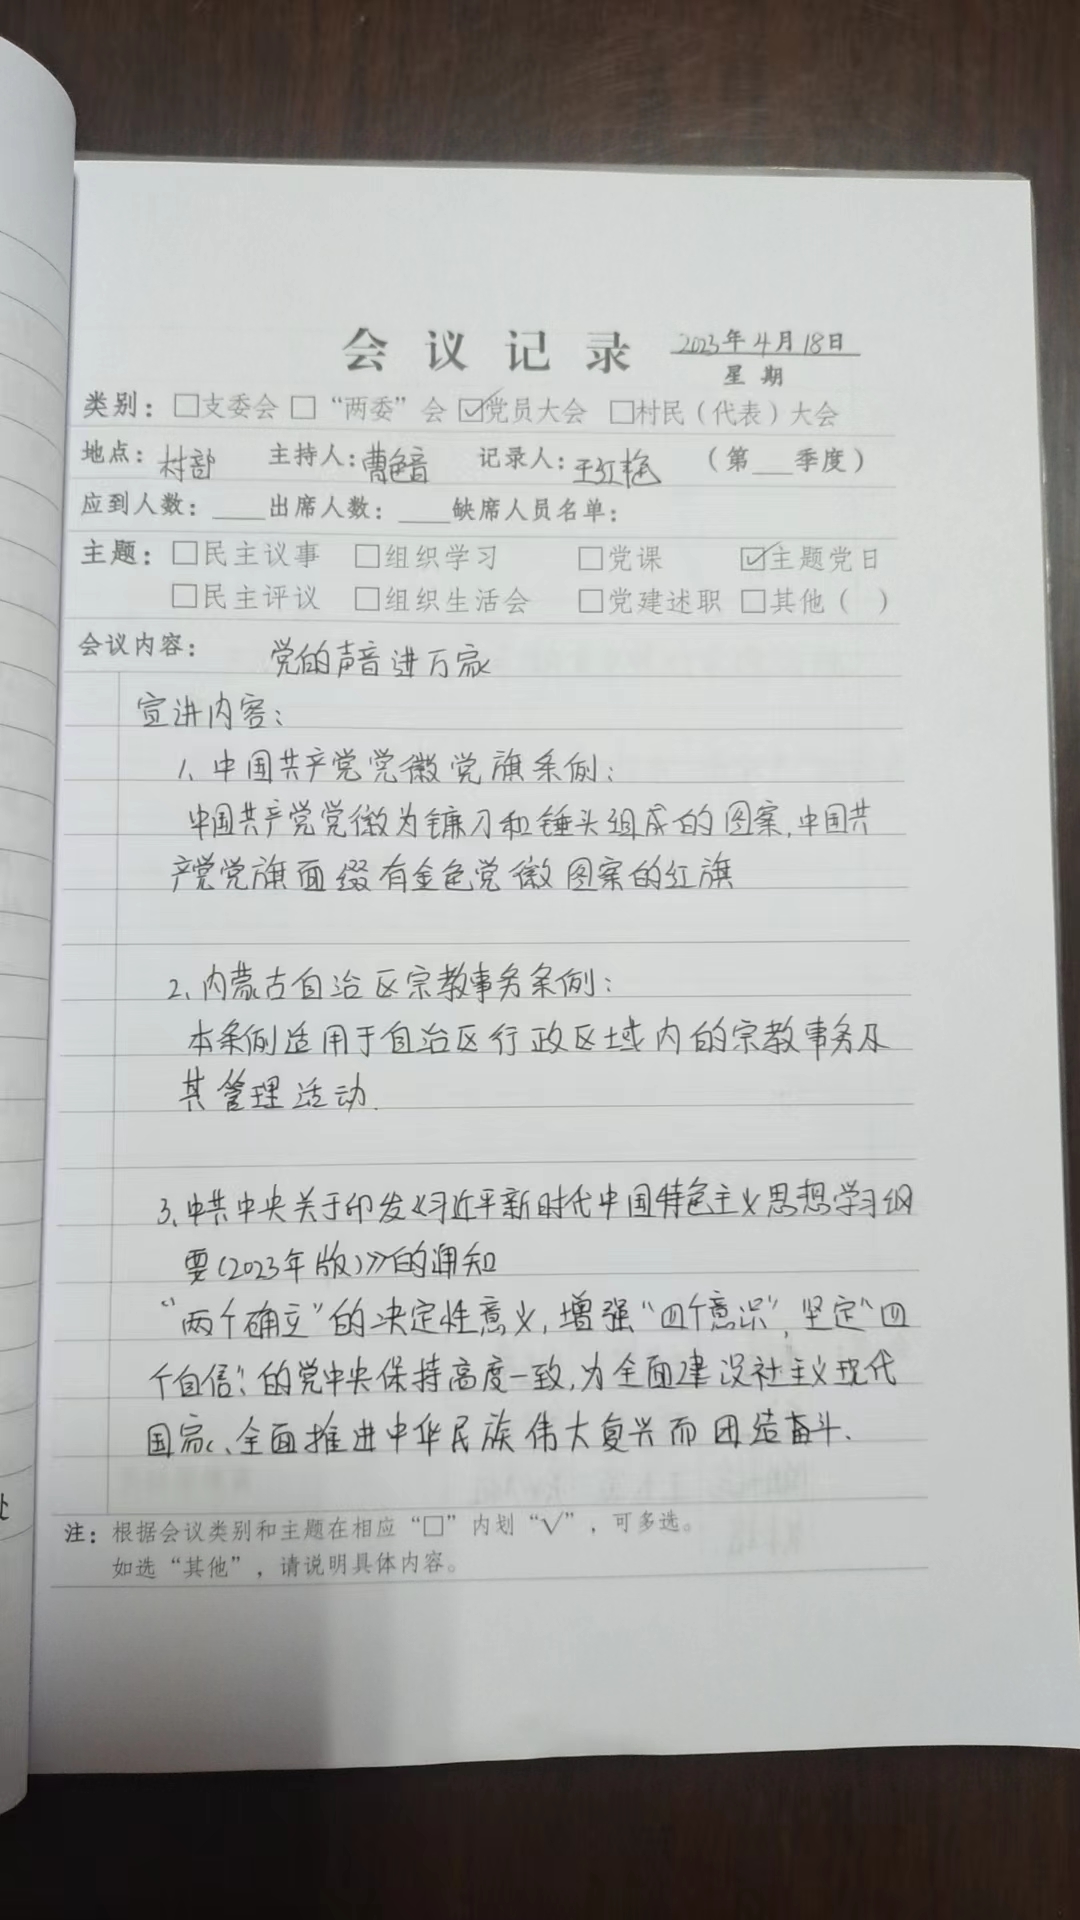 会议记录 2023年4月18日
星期
类别：□支委会 □“两委”会 ☑党员大会 □村民（代表）大会
地点：村部 主持人：曹色音 记录人：王红艳 （第___季度）
应到人数：____出席人数：____缺席人员名单：
主题：□民主议事 □组织学习 □党课 ☑主题党日
□民主评议 □组织生活会 □党建述职 □其他（ ）
会议内容： 党的声音进万家
宣讲内容：
1、中国共产党党徽党旗条例：
中国共产党党徽为镰刀和锤头组成的图案，中国共
产党党旗面缀有金色党徽图案的红旗
2、内蒙古自治区宗教事务条例：
本条例适用于自治区行政区域内的宗教事务及
其管理活动.
3、中共中央关于印发《习近平新时代中国特色主义思想学习纲
要（2023年版）》的通知
“两个确立”的决定性意义，增强“四个意识”，坚定“四
个自信”、的党中央保持高度一致，为全面建设社主义现代
国家、全面推进中华民族伟大复兴而团结奋斗.
注：根据会议类别和主题在相应“□”内划“√”，可多选。
如选“其他”，请说明具体内容。